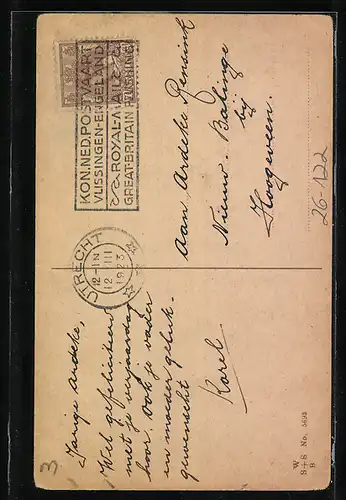 KON. NED. POSTVAART
VLISSINGEN-ENGELAND
ROYAL-MAIL
GREAT-BRITAIN-FLUSHING
UTRECHT
12-1N
12 III
1923
Aan Ardeke Rensink
Nieuw-Balinge
bij
Hoogeveen.
26-122
Jarige Ardeke,
Wel gefeliciteerd
met je verjaardag
hoor. Ook je vader
en moeder geluk-
gewenscht
Karel
3
W
S+S No. 5693
B